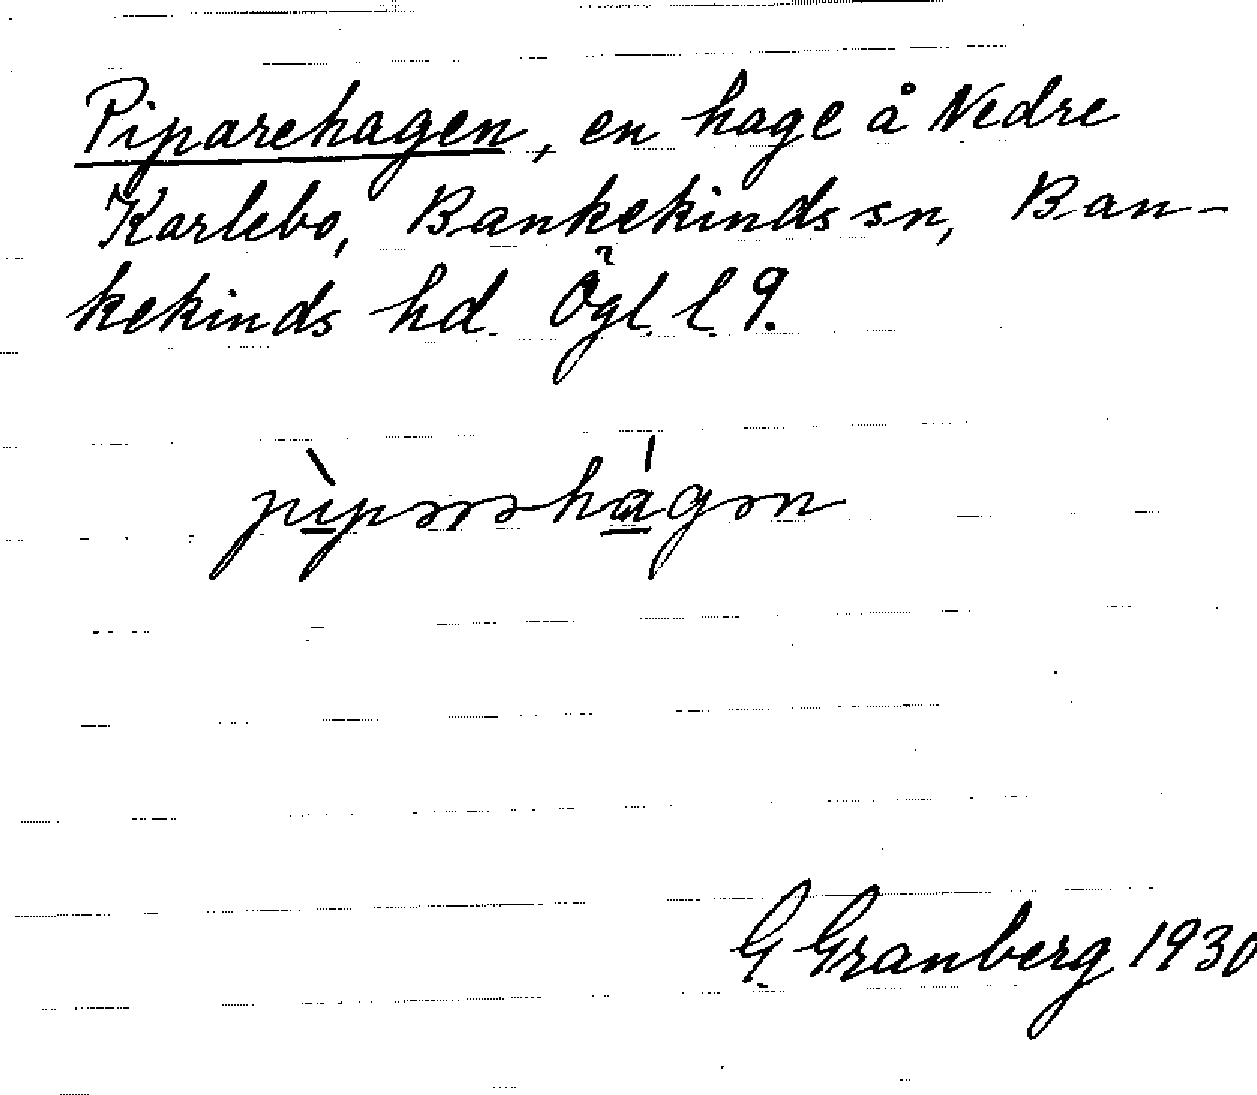 Piparehagen, en hage å Nedre
Karlebo, Bankekinds sn, Ban-
kekinds hd. Ögl. l. 9.
pìpərəhágən
G. Granberg 1930